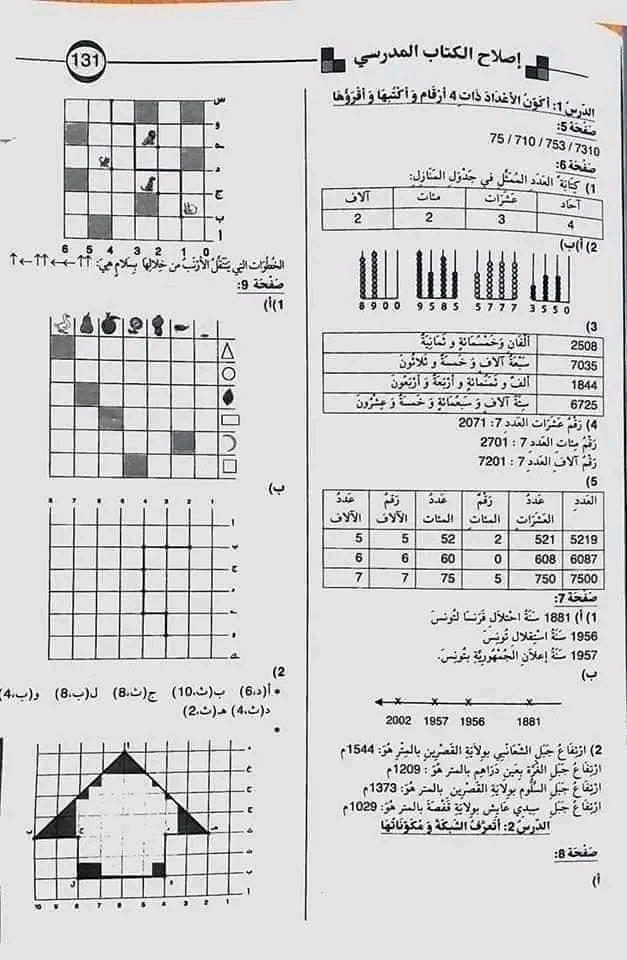 131
إصلاح الكتاب المدرسي
الدّرس 1: أكوّن الأعْدَادَ ذَاتِ 4 أرْقَام وَ أكْتُبُهَا وَ أقْرَؤُهَا
صَفْحَة 5:
75 / 710 / 753 / 7310
صَفْحَة 6:
1) كِتَابَة العَدَدِ المُمَثَّل فِي جَدْوَلِ المَنَازِلِ:
آحَاد عَشَرَات مئات آلاف
4 3 2 2
2) أ)ب)
8 9 0 0
9 5 8 5
5 7 7 7
3 5 5 0
3)
2508 ألْفَانِ وَخَمْسُمَائةٍ و ثَمَانِيَةٌ
7035 سَبْعَةُ آلاَفٍ وَ خَمْسَةٌ وَ ثَلاَثُونَ
1844 ألفٌ و ثَمَنُمَائةٍ و أرْبَعَةٌ وَ أرْبَعُونَ
6725 سِتَّةُ آلافٍ وَ سَبْعُمَائةٍ وَ خَمْسَةٌ وَ عِشْرُونَ
4) رَقْمُ عَشَرَات العَدَدِ 7: 2071
رَقْمُ مئات العَدَدِ 7 : 2701
رَقْمُ آلاَفِ العَدَدِ 7 : 7201
5)
العَدَدِ عَدَدُ العَشَرَاتِ رَقْمُ المئَاتِ عَدَدُ المئات رَقْمُ الآلاف عَدَدُ الآلاف
5219 521 2 52 5 5
6087 608 0 60 6 6
7500 750 5 75 7 7
صَفْحَة 7:
1) أ) 1881 سَنَةُ احْتلاَلِ فَرَنْسَا لتُونسَ
1956 سَنَةُ اسْتِقلال تُونِسَ
1957 سَنَةُ إعلاَن الجَمْهُوريَّةِ بِتُونِسَ.
ب)
2002 1957 1956 1881
2) ارْتِفَاعُ جَبَلِ الشَعَانْبِي بِولايَةِ القَصْرين بالمِتْرِ هُوَ: 1544م
ارْتِفَاعُ جَبَلِ الغُرَّة بِعَين دَرَاهِم بالمتر هُوَ : 1209م
ارْتِفَاعُ جَبَلِ السَلُّوم بِولاَيَةِ القَصْرَين بالمتر هُوَ: 1373م
ارْتِفَاعُ جَبَل سِيدِي عَايش بِولاَيَةِ قَفْصَةَ بالمتر هُوَ: 1029م
الدَّرسُ 2: أتَعرَّفُ الشَبكَةَ وَ مُكَوّنَاتُهَا
صَفْحَة 8:
أ)
س
و
د
ج
ب
أ
6 5 4 3 2 1 0
الخُطُوَات التِي يَنْتَقِلُ الأرْنَبُ من خِلالِهَا بِسَلام هِيَ: ↑←↑↑←←↑↑
صَفْحَة 9:
1)أ)
ب)
8 7 6 5 4 3 2 1
2)
• أ(د،6) ب(ث،10) ج(ث،8) ل(ب،8) و(ب،4)
د(ث،4) هـ(ث،2)
•
10 9 8 7 6 5 4 3 2 1